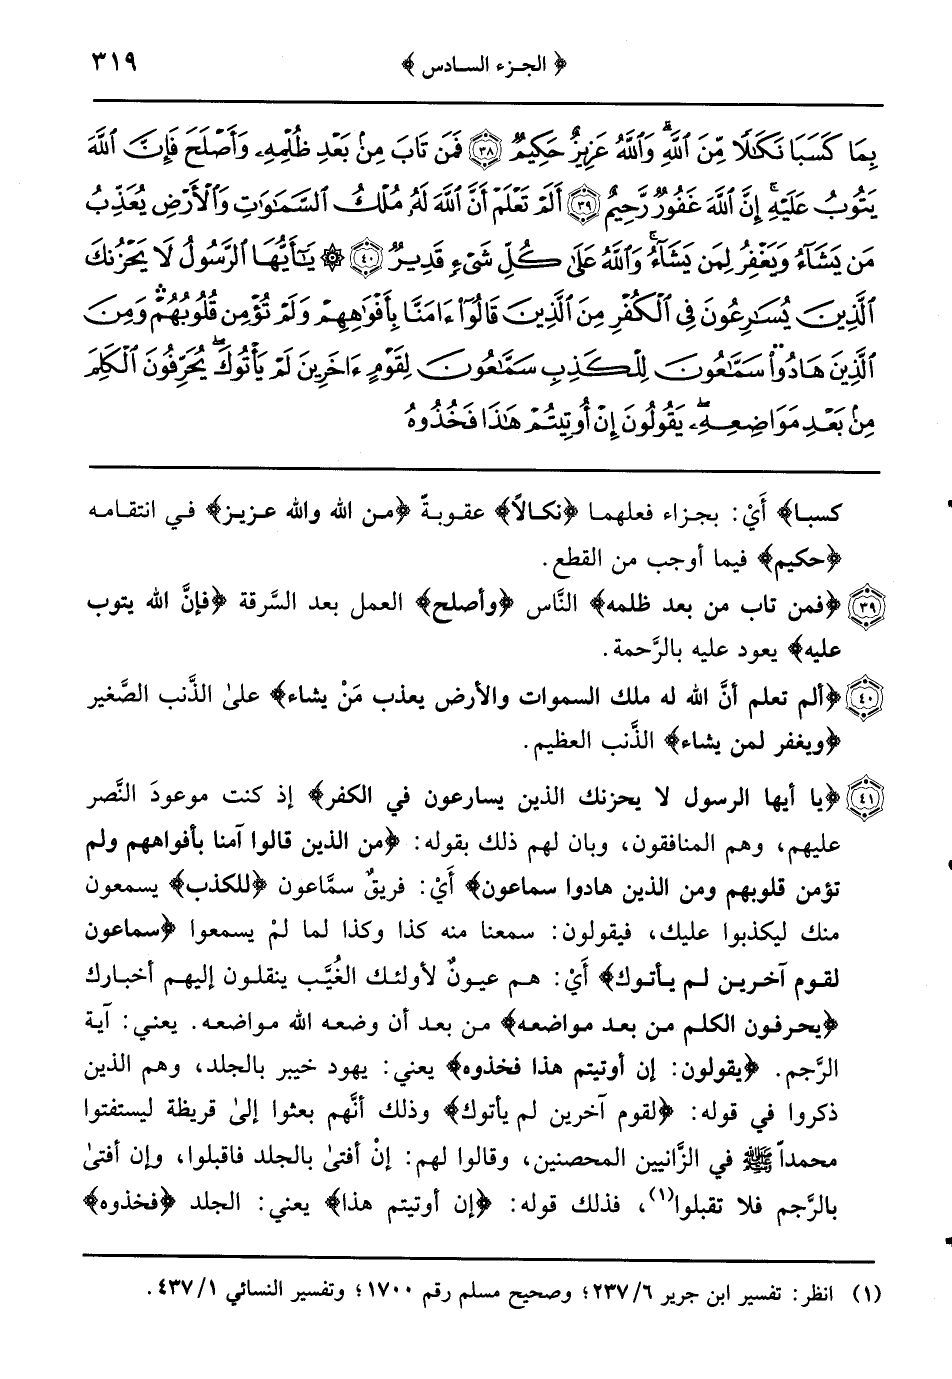 ﴿ الجزء السادس ﴾ ٣١٩
بِمَا كَسَبَا نَكَٰلًا مِّنَ ٱللَّهِۗ وَٱللَّهُ عَزِيزٌ حَكِيمٌ ٣٨ فَمَن تَابَ مِنۢ بَعْدِ ظُلْمِهِۦ وَأَصْلَحَ فَإِنَّ ٱللَّهَ
يَتُوبُ عَلَيْهِۚ إِنَّ ٱللَّهَ غَفُورٌ رَّحِيمٌ ٣٩ أَلَمْ تَعْلَمْ أَنَّ ٱللَّهَ لَهُۥ مُلْكُ ٱلسَّمَٰوَٰتِ وَٱلْأَرْضِ يُعَذِّبُ
مَن يَشَآءُ وَيَغْفِرُ لِمَن يَشَآءُۗ وَٱللَّهُ عَلَىٰ كُلِّ شَىْءٍ قَدِيرٌ ٤٠ ۞ يَٰٓأَيُّهَا ٱلرَّسُولُ لَا يَحْزُنكَ
ٱلَّذِينَ يُسَٰرِعُونَ فِى ٱلْكُفْرِ مِنَ ٱلَّذِينَ قَالُوٓا۟ ءَامَنَّا بِأَفْوَٰهِهِمْ وَلَمْ تُؤْمِن قُلُوبُهُمْۛ وَمِنَ
ٱلَّذِينَ هَادُوا۟ۛ سَمَّٰعُونَ لِلْكَذِبِ سَمَّٰعُونَ لِقَوْمٍ ءَاخَرِينَ لَمْ يَأْتُوكَۖ يُحَرِّفُونَ ٱلْكَلِمَ
مِنۢ بَعْدِ مَوَاضِعِهِۦۖ يَقُولُونَ إِنْ أُوتِيتُمْ هَٰذَا فَخُذُوهُ
كسبا﴾ أَيْ: بجزاء فعلهما ﴿نكالاً﴾ عقوبةً ﴿من الله والله عزيز﴾ في انتقامه
﴿حكيم﴾ فيما أوجب من القطع.
٣٩ ﴿فمن تاب من بعد ظلمه﴾ النَّاس ﴿وأصلح﴾ العمل بعد السَّرقة ﴿فإنَّ الله يتوب
عليه﴾ يعود عليه بالرَّحمة.
٤٠ ﴿ألم تعلم أنَّ الله له ملك السموات والأرض يعذب مَنْ يشاء﴾ علىٰ الذَّنب الصَّغير
﴿ويغفر لمن يشاء﴾ الذَّنب العظيم.
٤١ ﴿يا أيها الرسول لا يحزنك الذين يسارعون في الكفر﴾ إذ كنت موعودَ النَّصر
عليهم، وهم المنافقون، وبان لهم ذلك بقوله: ﴿من الذين قالوا آمنا بأفواههم ولم
تؤمن قلوبهم ومن الذين هادوا سماعون﴾ أَيْ: فريقٌ سمَّاعون ﴿للكذب﴾ يسمعون
منك ليكذبوا عليك، فيقولون: سمعنا منه كذا وكذا لما لمْ يسمعوا ﴿سماعون
لقوم آخرين لم يأتوك﴾ أَيْ: هم عيونٌ لأولئك الغُيَّب ينقلون إليهم أخبارك
﴿يحرفون الكلم من بعد مواضعه﴾ من بعد أن وضعه الله مواضعه. يعني: آية
الرَّجم. ﴿يقولون: إن أوتيتم هذا فخذوه﴾ يعني: يهود خيبر بالجلد، وهم الذين
ذكروا في قوله: ﴿لقوم آخرين لم يأتوك﴾ وذلك أنَّهم بعثوا إلىٰ قريظة ليستفتوا
محمداً ﷺ في الزَّانيين المحصنين، وقالوا لهم: إنْ أفتىٰ بالجلد فاقبلوا، وإن أفتىٰ
بالرَّجم فلا تقبلوا(١)، فذلك قوله: ﴿إن أوتيتم هذا﴾ يعني: الجلد ﴿فخذوه﴾
(١) انظر: تفسير ابن جرير ٢٣٧/٦؛ وصحيح مسلم رقم ١٧٠٠؛ وتفسير النسائي ٤٣٧/١.